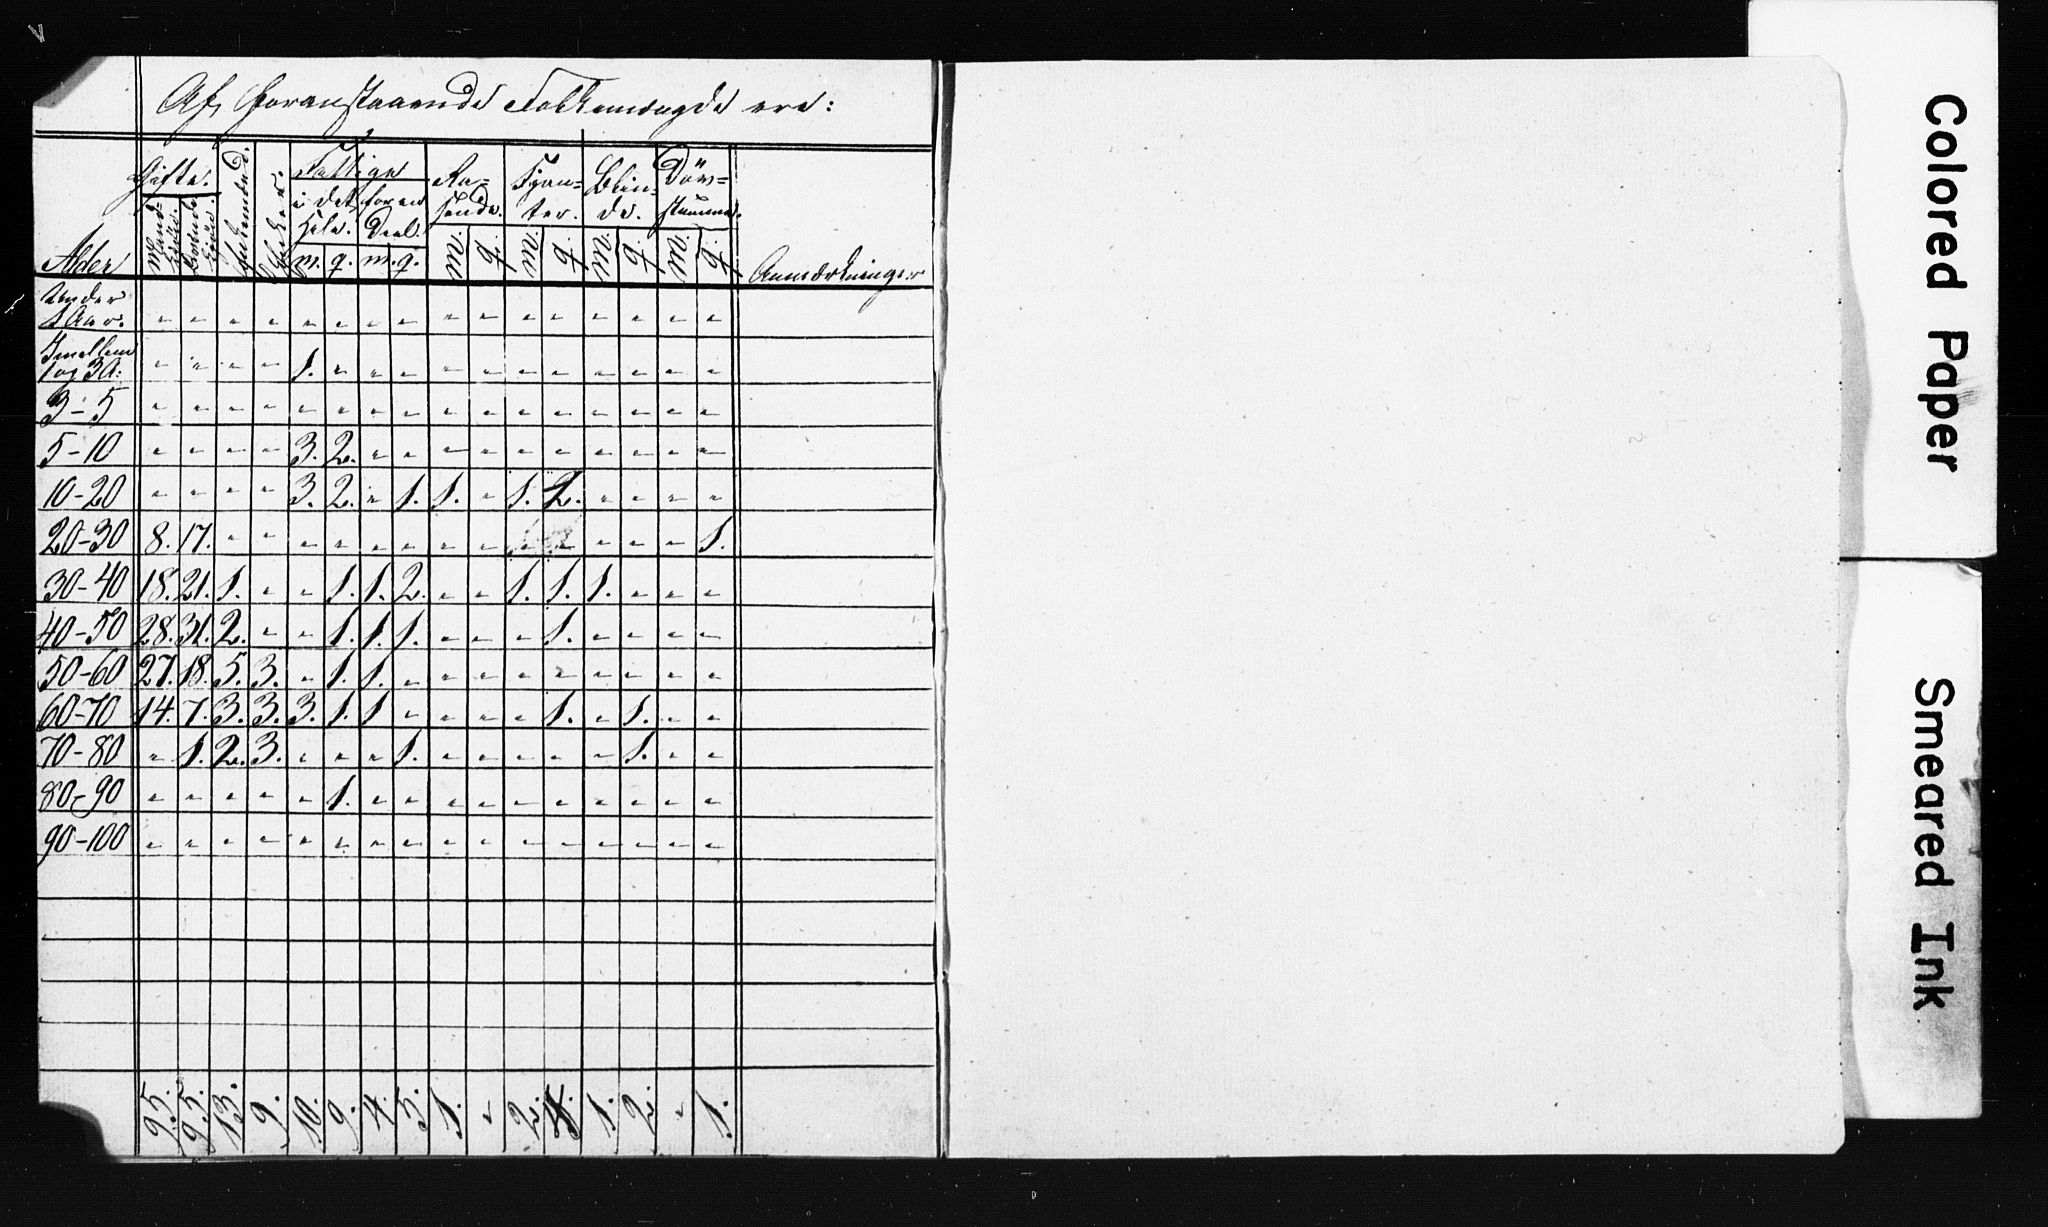 Af foranstaaende Folkemængde ere:
Alder Gifte. Enkemænd. Enker. Fattige Ra- Fjan- Blin- Døv-
i det for en sende. ter. de. stumme.
Hele. Deel.
Mand- Kjøn. Qvinde Kjøn. m. q. m. q. M. Q. M. Q. M. Q. M. Q. Anmærkninger
Under
1 Aar. " " " " " " " " " " " " " " " "
Imellem
1 og 3 A: " " " " 1. " " " " " " " " " " "
3-5 " " " " " " " " " " " " " " " "
5-10 " " " " 3. 2. " " " " " " " " " "
10-20 " " " " 3. 2. " 1. 1. " 1. 2. " " " "
20-30 8. 17. " " " " " " " " " " " " " 1.
30-40 18. 21. 1. " " 1. 1. 2. " " 1. 1. 1. " " "
40-50 28. 31. 2. " " 1. 1. 1. " " " 1. " " " "
50-60 27. 18. 5. 3. " 1. 1. " " " " " " " " "
60-70 14. 7. 3. 3. 3. 1. 1 " " " " 1. " 1. " "
70-80 " 1. 2. 3. " " " 1. " " " " " 1. " "
80-90 " " " " " 1. " " " " " " " " " "
90-100 " " " " " " " " " " " " " " " "
95. 95. 13. 9. 10. 9. 4. 5. 1. " 2. 4. 1. 2. " 1.
Colored Paper
Smeared Ink